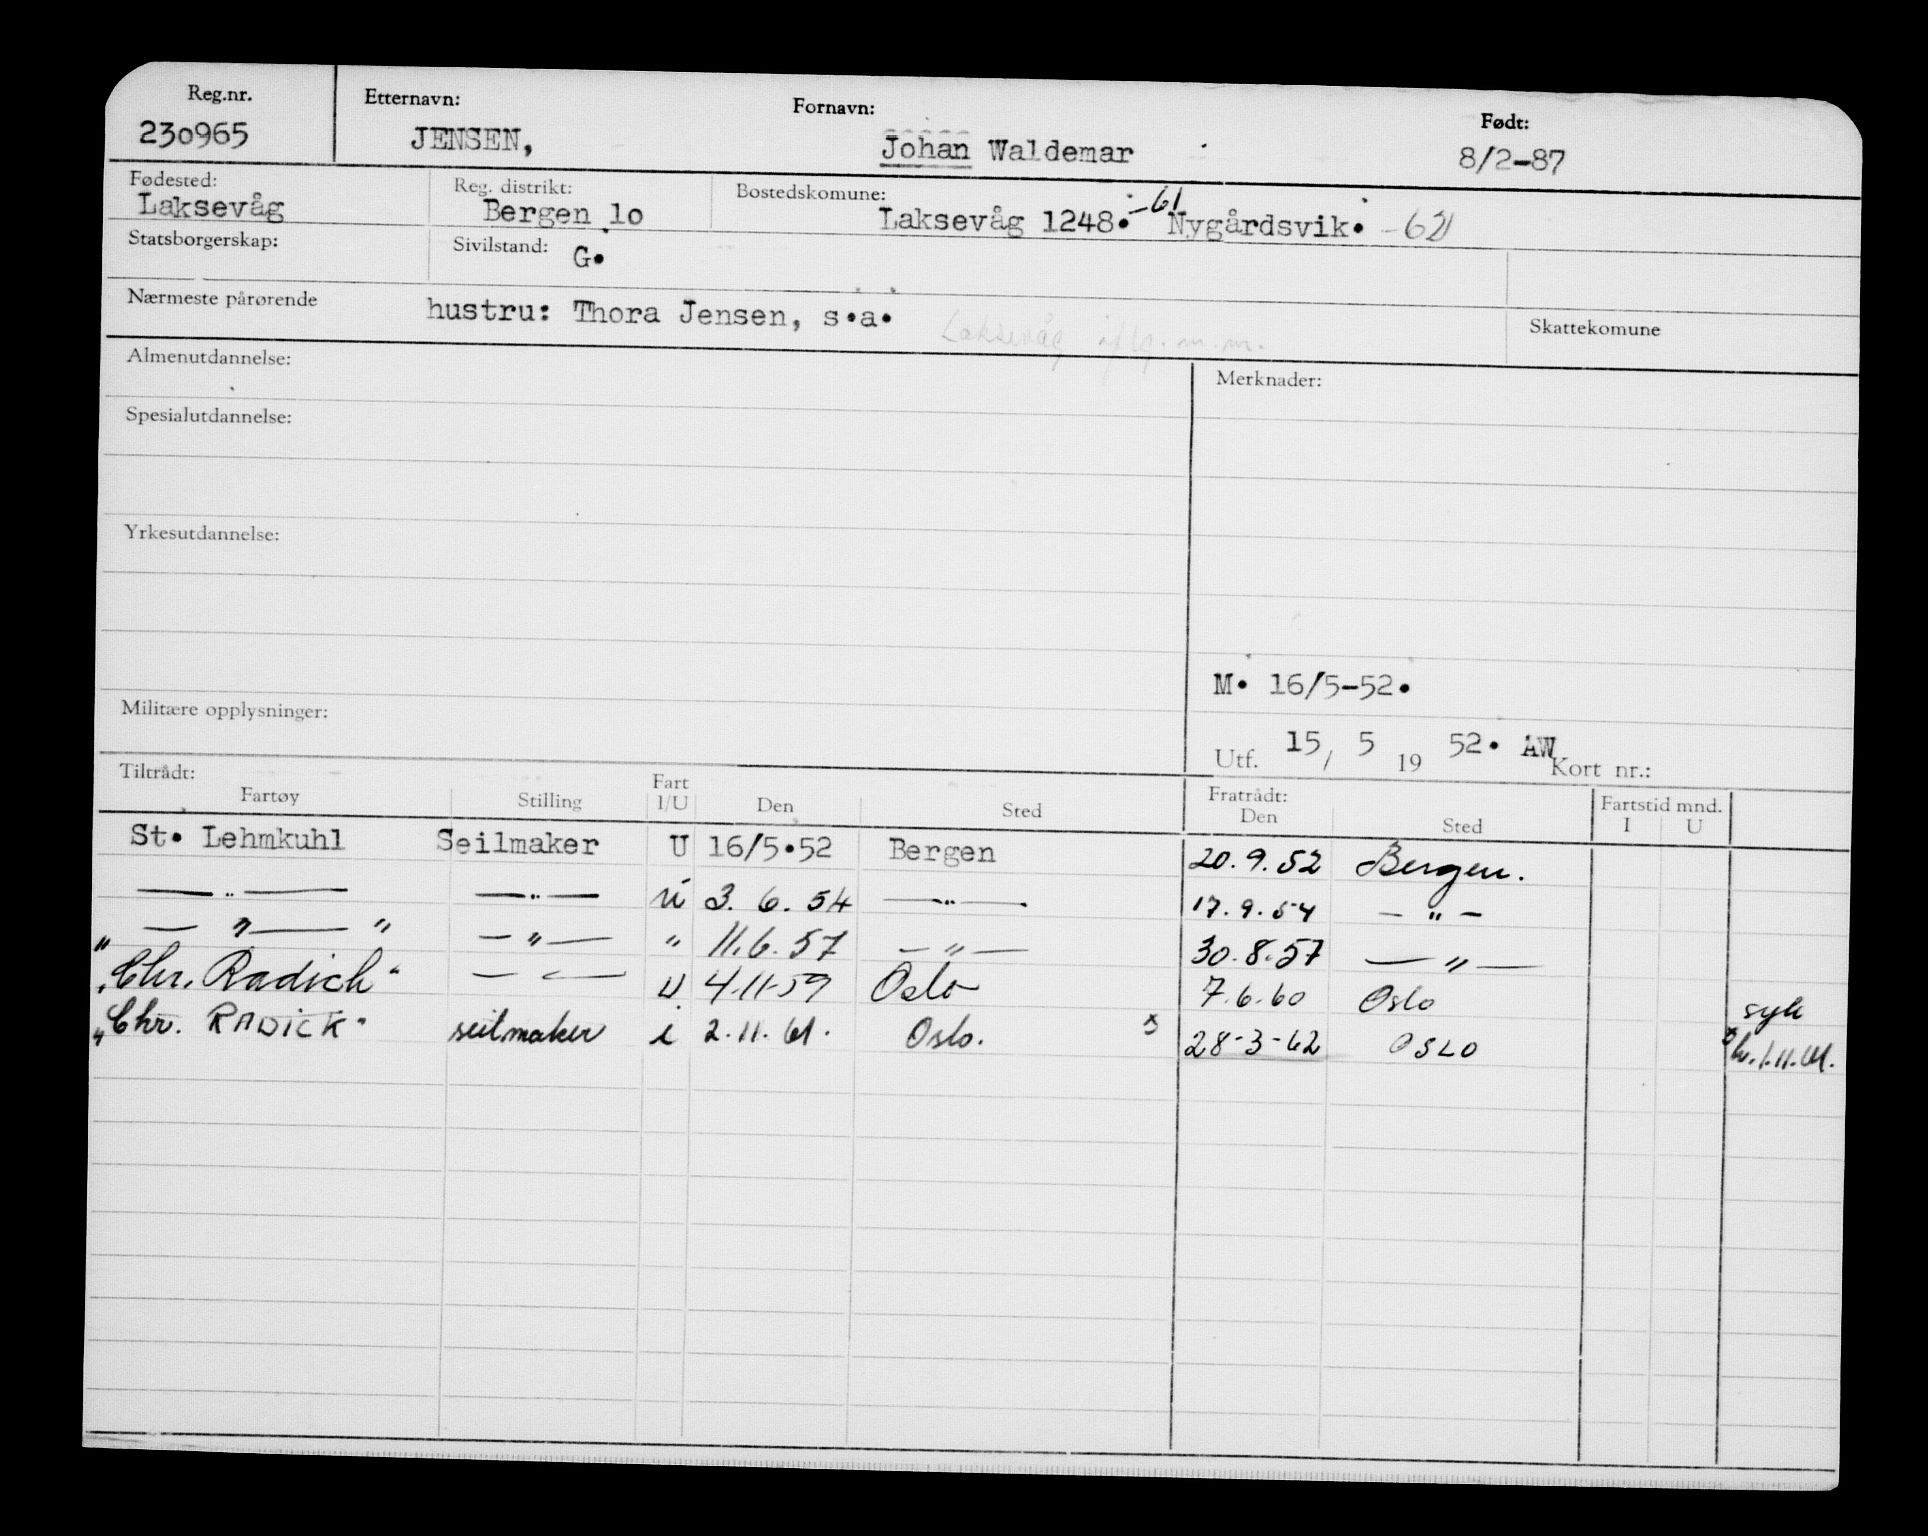 Reg.nr. Etternavn: Fornavn: Født:
230965 JENSEN, Johan Waldemar 8/2-87
Fødested: Reg. distrikt: Bostedskomune:
Laksevåg Bergen 10 Laksevåg 1248. -61 Nygårdsvik. -62
Statsborgerskap: Sivilstand: G.
Nærmeste pårørende hustru: Thora Jensen, s.a. Laksevåg iflg. m.m. Skattekomune
Almenutdannelse: Merknader:
Spesialutdannelse:
Yrkesutdannelse:
M. 16/5-52.
Militære opplysninger:
Utf. 15/ 5 19 52. AW Kort nr.:
Tiltrådt: Fart Fratrådt: Fartstid mnd.
Fartøy Stilling I/U Den Sted Den Sted I U
St. Lehmkuhl Seilmaker U 16/5.52 Bergen 20.9.52 Bergen.
— " — — " — U 3. 6. 54 — " — 17.9.54 — " —
" — " — " — " — " 11.6.57 — " — 30.8.57 — " —
"Chr. Radich" — " — U 4.11.59 Oslo 7.6.60 Oslo syk
"Chr. RADICK" seilmaker i 2.11.61. Oslo. x 28-3-62 OSLO x h. 1.11.61.